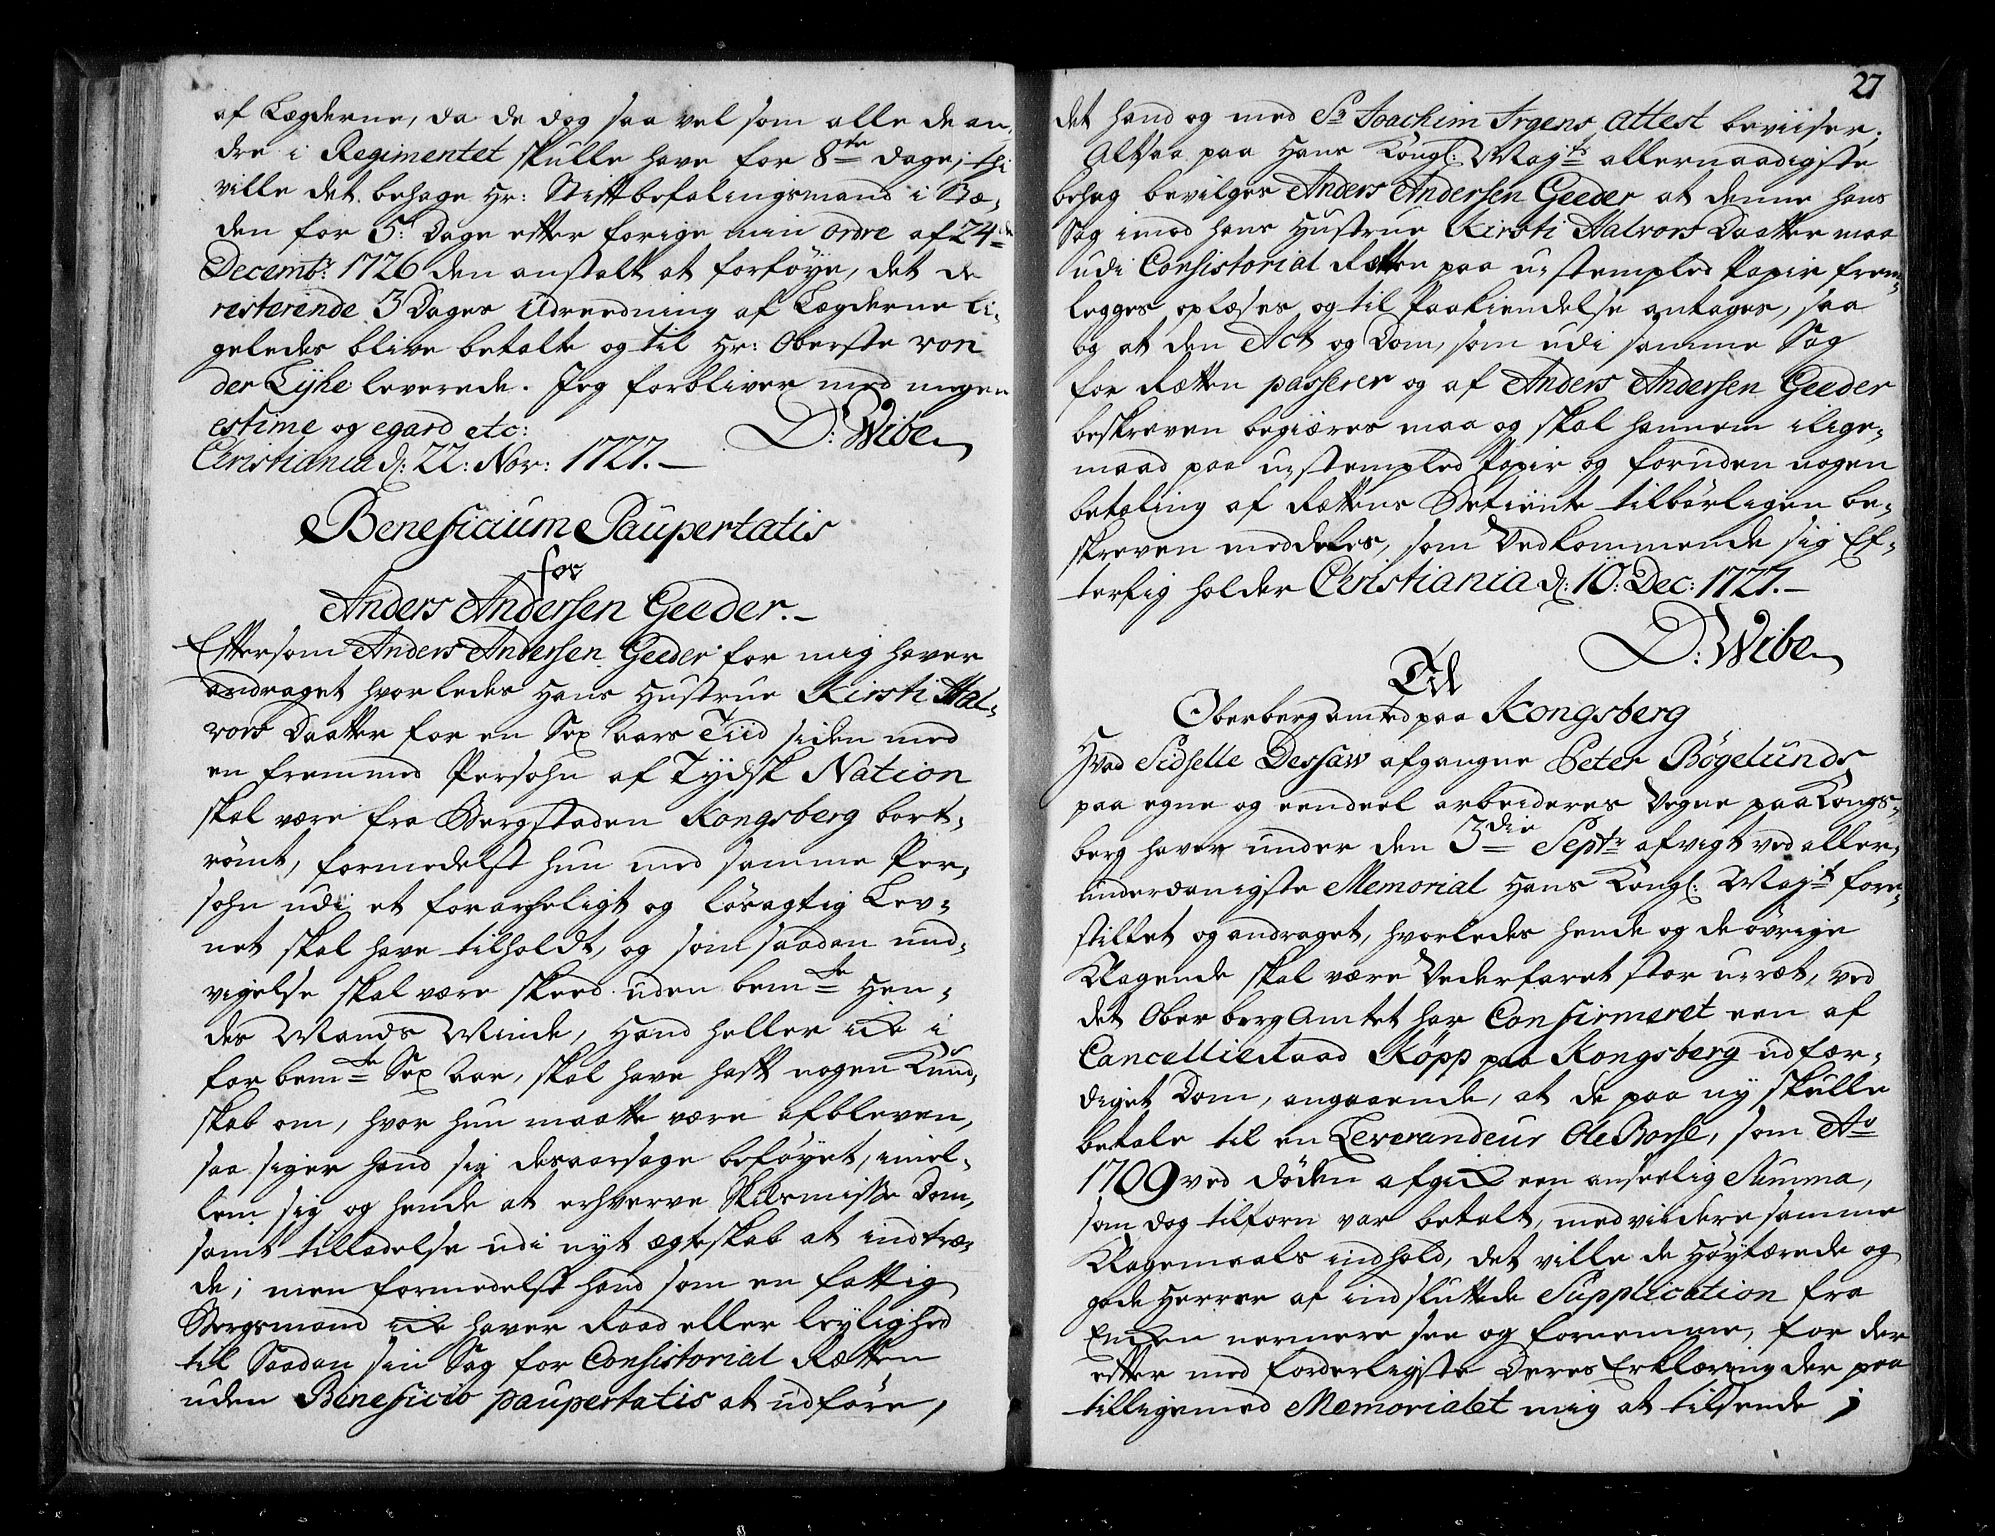 af Lægderne, da de dog saa vel som alle de an,
dre i Regimentet skulle have for 8te dage; thi
ville det behage Hr: Stiftbefalingsmand i Bø,
den for 5: Dage efter forige min ordre af 24de
Decembr: 1726 den anstalt at forføye, det de
resterende 3 Dages Udreedning af Lægderne li,
geledes blive betalte og til Hr: Oberste von
der Lyhe leverede. Jeg forbliver med megen
estime og egard etc:
D: Wibe
Christiania d: 22: Nov: 1727.
Beneficium Paupertatis
for
Anders Andersen Geeder.
Eftersom Anders Andersen Geeder for mig haver
andraget hvorledes Hans Hustrue Kirsti Hal,
vors Daatter for en Sex Aars Tiid siden med
en fremmed Persohn af Tydsk Nation
skal være fra Bergstaden Kongsberg bort,
rømt, formedelst hun med samme Per,
sohn udi et forargeligt og løsagtig Lev,
net skal have tilholdt, og som saadan und,
vigelse skal være skeed uden bemte Hen,
des Mands Minde, Hand heller icke i
forbemte Sex Aar, skal have haft nogen Kund,
skab om, hvor hun maatte være afbleven,
saa siger hand sig desaarsage beføyet, imel,
lem sig og hende at erhverve Skilsmisse Dom,
samt tilladelse udi nyt ægteskab at indtræ,
de; men formedelst hand som en fattig
Bergmand icke haver Raad eller leylighed
til Saadan sin Sag for Consistorial Rætten
uden Beneficio paupertatis at udføre,
27
det hand og med Sr Joachim Irgens Attest beviiser;
Altsaa paa Hans Kongl: Mayts allernaadigste
behag bevilges Anders Andersen Geeder at denne hans
Sag imod hans Hustrue Kirsti Halvors Daatter maa
udi Consistorial Rætten paa u-stempled Papir frem,
legges, oplæses, og til Paakiendelse antages, saa
og at den Act og Dom, som udi samme Sag
for Rætten passerer og af Anders Andersen Geeder
beskreven begiæres maa og skal hannem i lige,
maad paa u-stempled Papir og foruden nogen
betaling af Rættens Betiente tilbørligen be,
skreven meddeles, som Vedkommende sig Ef,
terfig holder Christiania d: 10: Dec: 1727.
D: Wibe
Til
Oberbergamted paa Kongsberg
Hvad Sidselle Dessaw afgangne Peter Bøgelunds
paa egne og eendeel arbeideres Vegne paa Kongs,
berg haver under den 3die Septr afvigt ved aller,
underdanigste Memorial Hans Kongl: Mayt fore,
stillet og andraget, hvorledes hende og de øvrige
Klagende skal være Vederfaret stor urræt, ved
det Oberberg Amtet har Confirmeret een af
Cancellieraad Köpp paa Kongsberg udfær,
diget Dom, angaaende, at de paa ny skulle
betale til en Leverandeur Ole Borse, som Ao
1709 ved døden afgick een anseelig Summa,
som dog tilforn var betalt, med viidere samme
Klagemaals indhold, det ville de Høytærede og
gode Herrer af indsluttede Supplication fra
Enken nermere see og fornemme, for der
efter med forderligste Deres Erklæring der paa
tilligemed Memorialet mig at tilsende;